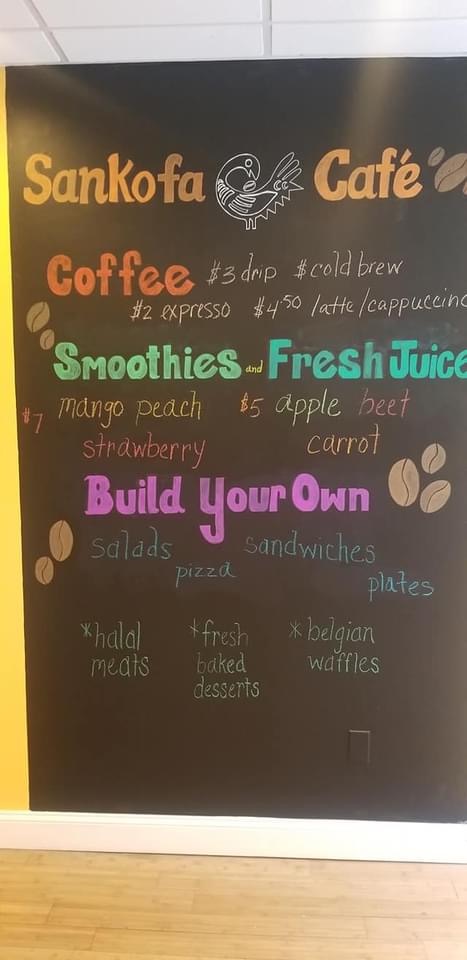 Sankofa Café
Coffee $3 drip $cold brew
$2 expresso $4.50 latte/cappuccino
Smoothies and Fresh Juice
$7 mango peach $5 apple beet
strawberry carrot
Build Your Own
salads sandwiches
pizza plates
*halal *fresh *belgian
meats baked waffles
desserts